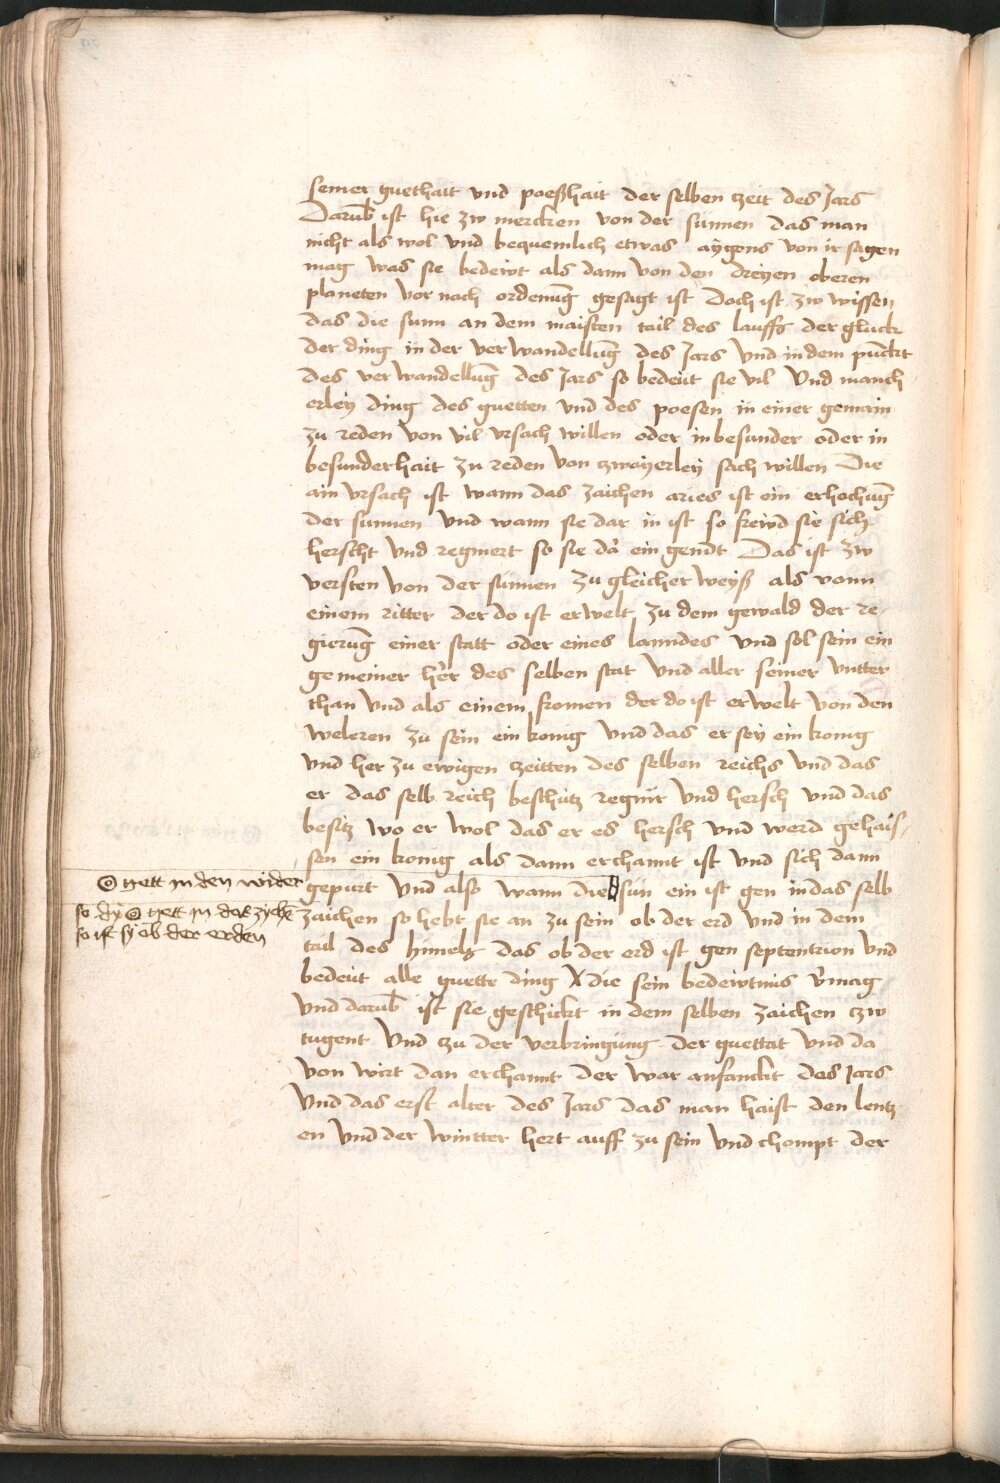 seiner guethait vnd poeßhait der selben zeit des Jars
Darub̄ ist hie zw mercken von der sunnen das man
nicht als wol vnd bequemlich etwas aygens von ir sagen
mag was sie bedeẅt als dann von den dreyen oberen
planeten vor nach ordenūg gesagt ist doch ist zw wissen
das die sunn an dem maisten tail des lauffs der gluck
der ding in der ver wandellūg des Jars vnd in dem pūckt
des ver wandellūg des Jars so bedeẅt sie vil vnd manch
erley ding des guetten vnd des poesen in einer gemain
zu reden von vil vrsach willen oder in besunder oder in
besunderhait zu reden von zwayerley sach willen Die
ain vrsach ist wann das zaichen aries ist ein erhochūg
der sunnen vnd wann sie dar in ist so freẅd sie sich
herscht vnd regniert so sie da ein gendt Das ist zw
versten von der sunnen zu gleicher weyß als vonn
einem ritter der do ist erwelt zu dem gewald der re
gierūg einer statt oder eines lanndes vnd sol sein ein
gemeiner her des selben stat vnd aller seiner vntter
than vnd als einem fromen der do ist erwelt von den
weleren zu sein ein konig vnd das er sey ein konig
vnd her zu ewigen zeitten des selben reichs vnd das
er das selb reich beschutz regnir vnd hersch vnd das
besitz wo er wol das er es hersch vnd werd gehais-
sen ein konig als dann erchannt ist vnd sich dann
☉ trett in den wider
gepurt vnd also wann die sun ein ist gen in das selb
so dy ☉ trett in das zyche
zaichen so hebt sie an zu sein ob der erd vnd in dem
so ist sy ob der erden
tail des himels das ob der erd ist gen septentrion vnd
bedeut alle guette ding die sein bedeẅtnus v̄mag
vnd darub̄ ist sie geschickt in dem selben zaichen zw
tugent vnd zu der verbringung der guettat vnd da
von wirt dan erchannt der war anfanckt des Jars
vnd das erst alter des Jars das man haist den lentz
en vnd der wintter hert auff zu sein vnd chompt der